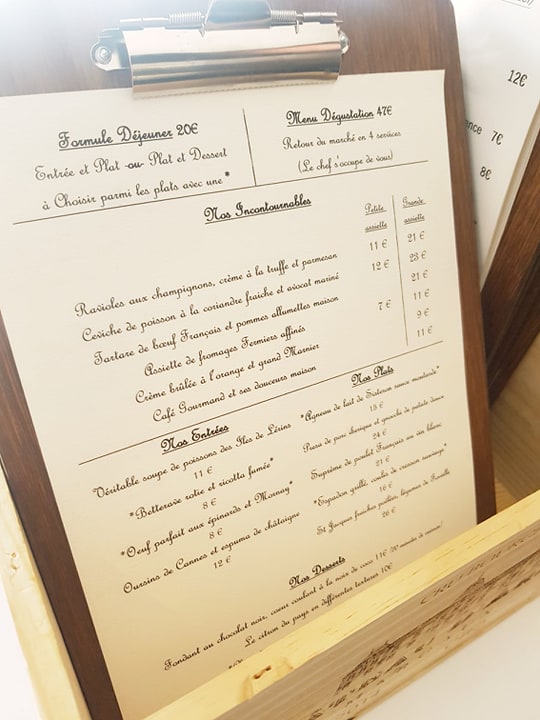 Formule Déjeuner 20€
Entrée et Plat -ou- Plat et Dessert
à Choisir parmi les plats avec une *
Menu Dégustation 47€
Retour du marché en 4 services
(Le chef s'occupe de vous)
Nos Incontournables
Petite assiette
Grande assiette
Ravioles aux champignons, crème à la truffe et parmesan 11 € 21 €
Ceviche de poisson à la coriandre fraiche et avocat mariné 12 € 23 €
Tartare de bœuf Français et pommes allumettes maison 21 €
Assiette de fromages Fermiers affinés 7 € 11 €
Crème brûlée à l'orange et grand Marnier 9 €
Café Gourmand et ses douceurs maison 11 €
Nos Entrées
Véritable soupe de poissons des Iles de Lérins
11 €
*Betterave rotie et ricotta fumée*
8 €
*Oeuf parfait aux épinards et Mornay*
8 €
Oursins de Cannes et espuma de châtaigne
12 €
Nos Plats
*Agneau de lait de Sisteron sauce moutarde*
15 €
de porc iberique et gnocchi de patate douce
24 €
Suprême de poulet Français au vin blanc
21 €
*Espadon grillé, coulis de cresson sauvage*
16 €
St Jacques fraiches poêlées, légumes de
26 €
Nos Desserts
Fondant au chocolat noir, cœur coulant à la noix de coco 11€ (10 minutes de cuisson)
Le citron du pays en différentes textures 10€
12€
7€
8€